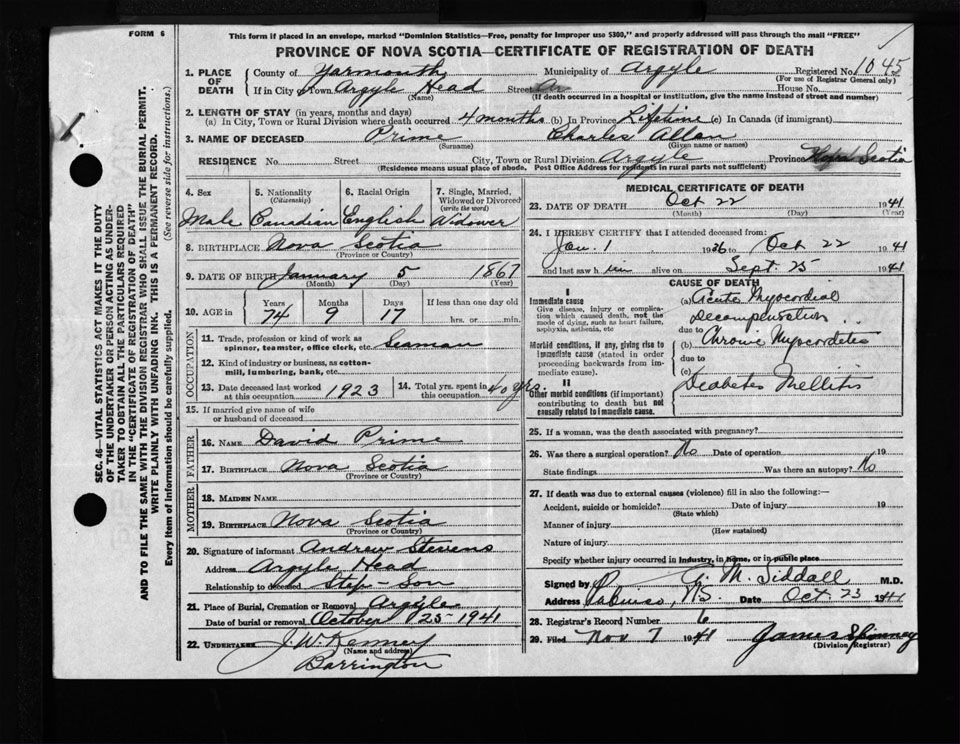 FORM 6
This form if placed in an envelope, marked "Dominion Statistics—Free, penalty for improper use $300," and properly addressed will pass through the mail "FREE"
PROVINCE OF NOVA SCOTIA—CERTIFICATE OF REGISTRATION OF DEATH
1. PLACE OF DEATH
County of Yarmouth Municipality of Argyle Registered No. 1045
(For use of Registrar General only)
If in City or Town Argyle Head Street House No.
(Name) (If death occurred in a hospital or institution, give the name instead of street and number)
2. LENGTH OF STAY (in years, months and days)
(a) In City, Town or Rural Division where death occurred 4 months (b) In Province Lifetime (c) In Canada (if immigrant)
3. NAME OF DECEASED Prime Charles Allan
(Surname) (Given name or names)
RESIDENCE No. Street City, Town or Rural Division Argyle Province Nova Scotia
(Residence means usual place of abode. Post Office Address for residents in rural parts not sufficient)
4. Sex
Male
5. Nationality
(Citizenship)
Canadian
6. Racial Origin
English
7. Single, Married, Widowed or Divorced
(write the word)
Widower
8. BIRTHPLACE Nova Scotia
(Province or Country)
9. DATE OF BIRTH January 5 1867
(Month) (Day) (Year)
10. AGE in Years Months Days If less than one day old
74 9 17 hrs. or min.
OCCUPATION
11. Trade, profession or kind of work as spinner, teamster, office clerk, etc. Seaman
12. Kind of industry or business, as cotton-mill, lumbering, bank, etc.
13. Date deceased last worked at this occupation 1923
14. Total yrs. spent in this occupation 40 yrs.
15. If married give name of wife or husband of deceased
FATHER
16. NAME David Prime
17. BIRTHPLACE Nova Scotia
(Province or Country)
MOTHER
18. MAIDEN NAME
19. BIRTHPLACE Nova Scotia
(Province or Country)
20. Signature of informant Andrew Stevens
Address Argyle Head
Relationship to deceased Step-Son
21. Place of Burial, Cremation or Removal Argyle
Date of burial or removal October 25 1941
22. UNDERTAKER J. W. Kenney
(Name and address)
Barrington
MEDICAL CERTIFICATE OF DEATH
23. DATE OF DEATH Oct 22 1941
(Month) (Day) (Year)
24. I HEREBY CERTIFY that I attended deceased from:
Jan. 1 1936 to Oct 22 1941
and last saw h im alive on Sept. 25 1941
CAUSE OF DEATH
I
Immediate cause
Give disease, injury or complication which caused death, not the mode of dying, such as heart failure, asphyxia, asthenia, etc
(a) Acute Myocordial Decompensation
due to
Morbid conditions, if any, giving rise to immediate cause (stated in order proceeding backwards from immediate cause).
(b) Chronic Myocordetis
due to
(c)
II
Other morbid conditions (if important) contributing to death but not causally related to immediate cause.
Deabetes Mellitis
25. If a woman, was the death associated with pregnancy?
26. Was there a surgical operation? No Date of operation 19
State findings Was there an autopsy? No
27. If death was due to external causes (violence) fill in also the following:—
Accident, suicide or homicide? Date of injury 19
(State which)
Manner of injury
(How sustained)
Nature of injury
Specify whether injury occurred in industry, in home, or in public place
Signed by M. Siddall M.D.
Address N.S. Date Oct. 23 1941
28. Registrar's Record Number 6
29. Filed Nov 7 1941 James Spinney
(Division Registrar)
SEC. 46—VITAL STATISTICS ACT MAKES IT THE DUTY
OF THE UNDERTAKER OR PERSON ACTING AS UNDER-
TAKER TO OBTAIN ALL THE PARTICULARS REQUIRED
IN THE "CERTIFICATE OF REGISTRATION OF DEATH"
AND TO FILE THE SAME WITH THE DIVISION REGISTRAR WHO SHALL ISSUE THE BURIAL PERMIT.
WRITE PLAINLY WITH UNFADING INK. THIS IS A PERMANENT RECORD.
Every item of information should be carefully supplied. (See reverse side for instructions.)